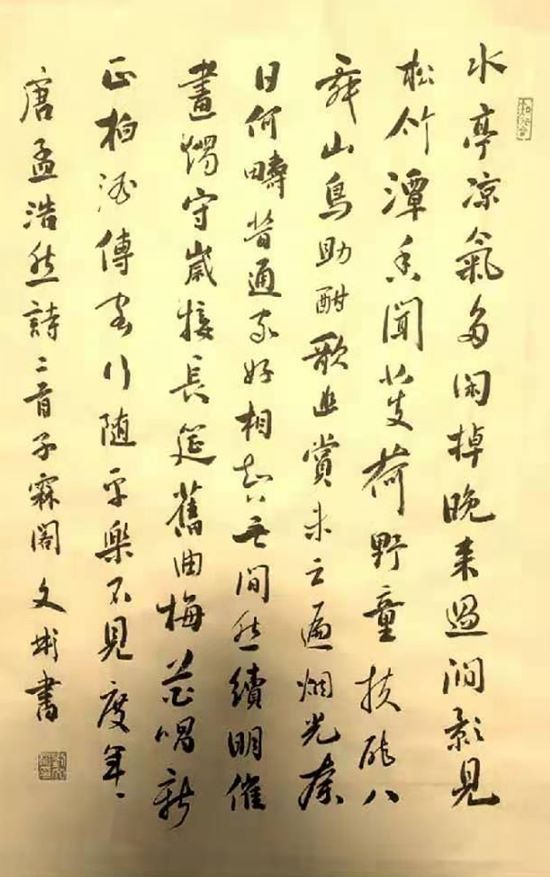 水亭凉氣多閑掉晚来過澗影見
松竹潭香聞芰荷野童扶醉八
舞山鳥助酣歌幽賞未云遍烟光奈
日何疇昔通家好相知无間然續明催
畫燭守歲接長筵舊曲梅花唱新
正柏酒傳客行随處樂不見度年、
唐孟浩然詩二首子霖閣文彬書